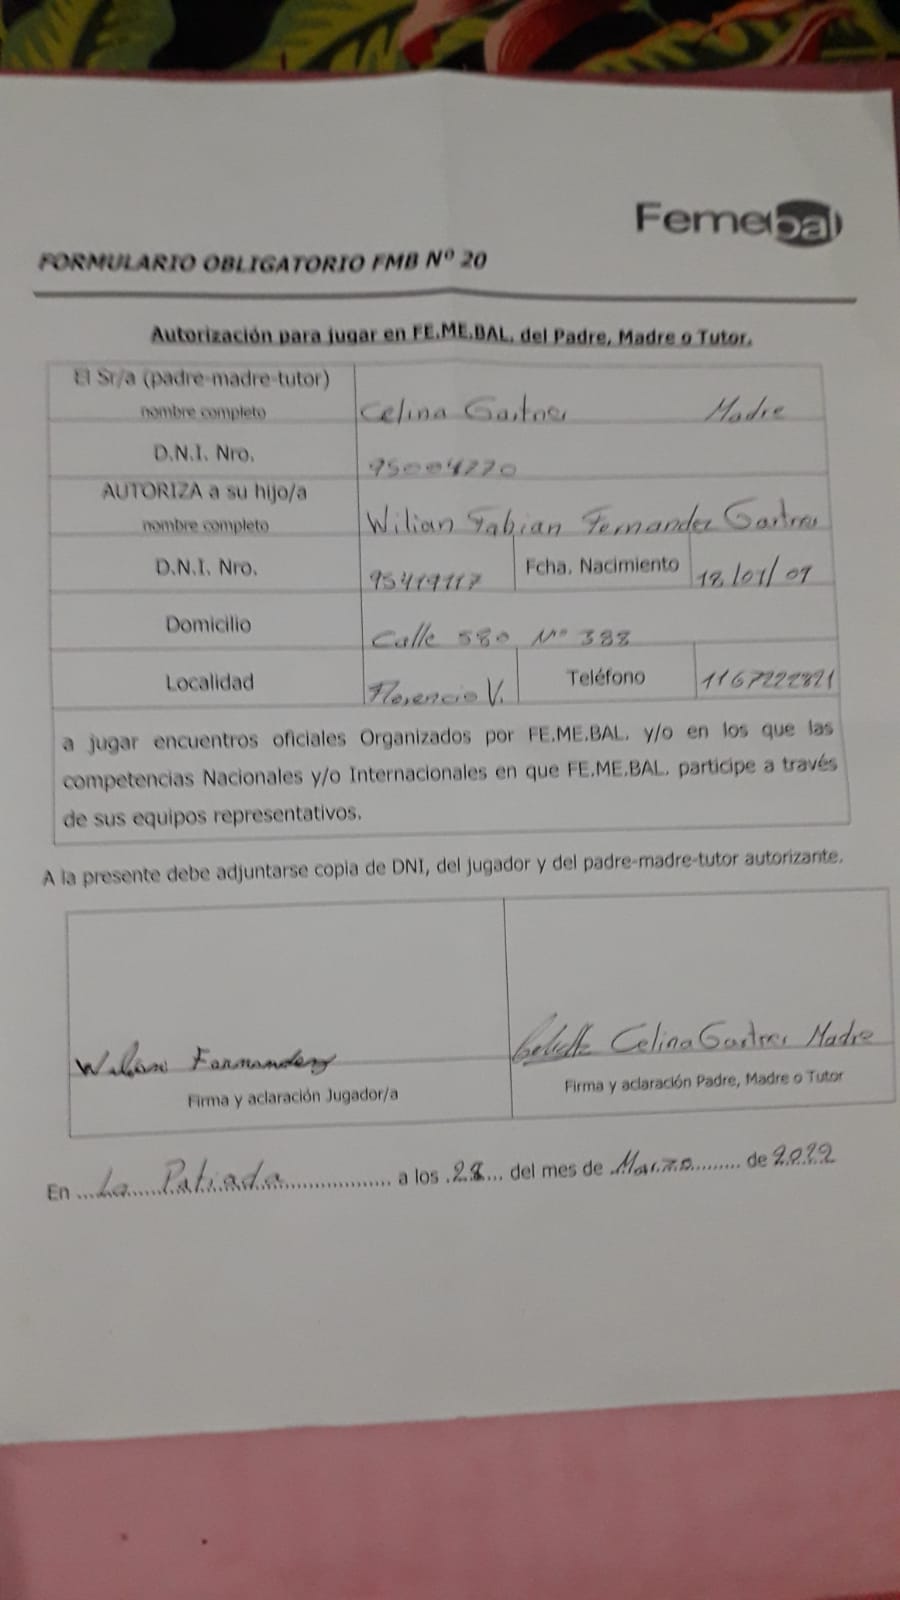 Femebal
FORMULARIO OBLIGATORIO FMB Nº 20
Autorización para jugar en FE.ME.BAL. del Padre, Madre o Tutor.
El Sr/a (padre-madre-tutor)
nombre completo
Celina Gastner Madre
D.N.I. Nro.
95004270
AUTORIZA a su hijo/a
nombre completo
Wilian Fabian Fernandez Gastner
D.N.I. Nro.
95419117
Fcha. Nacimiento
Domicilio
Calle 580 Nº 388
Localidad
Florencio V.
Teléfono
a jugar encuentros oficiales Organizados por FE.ME.BAL. y/o en los que las
competencias Nacionales y/o Internacionales en que FE.ME.BAL. participe a través
de sus equipos representativos.
A la presente debe adjuntarse copia de DNI, del jugador y del padre-madre-tutor autorizante.
Wilian Fernandez
Celina Gastner Madre
Firma y aclaración Jugador/a
Firma y aclaración Padre, Madre o Tutor
En ...La Patriada... a los .28... del mes de .Marzo......... de 2022